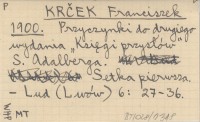 P
KRČEK Franciszek
1900. Przyczynki do drugiego
wydania „Księgi przysłów"
S. Adalberga.
Setka pierwsza.
- Lud (Lwów) 6: 27-36.
MT